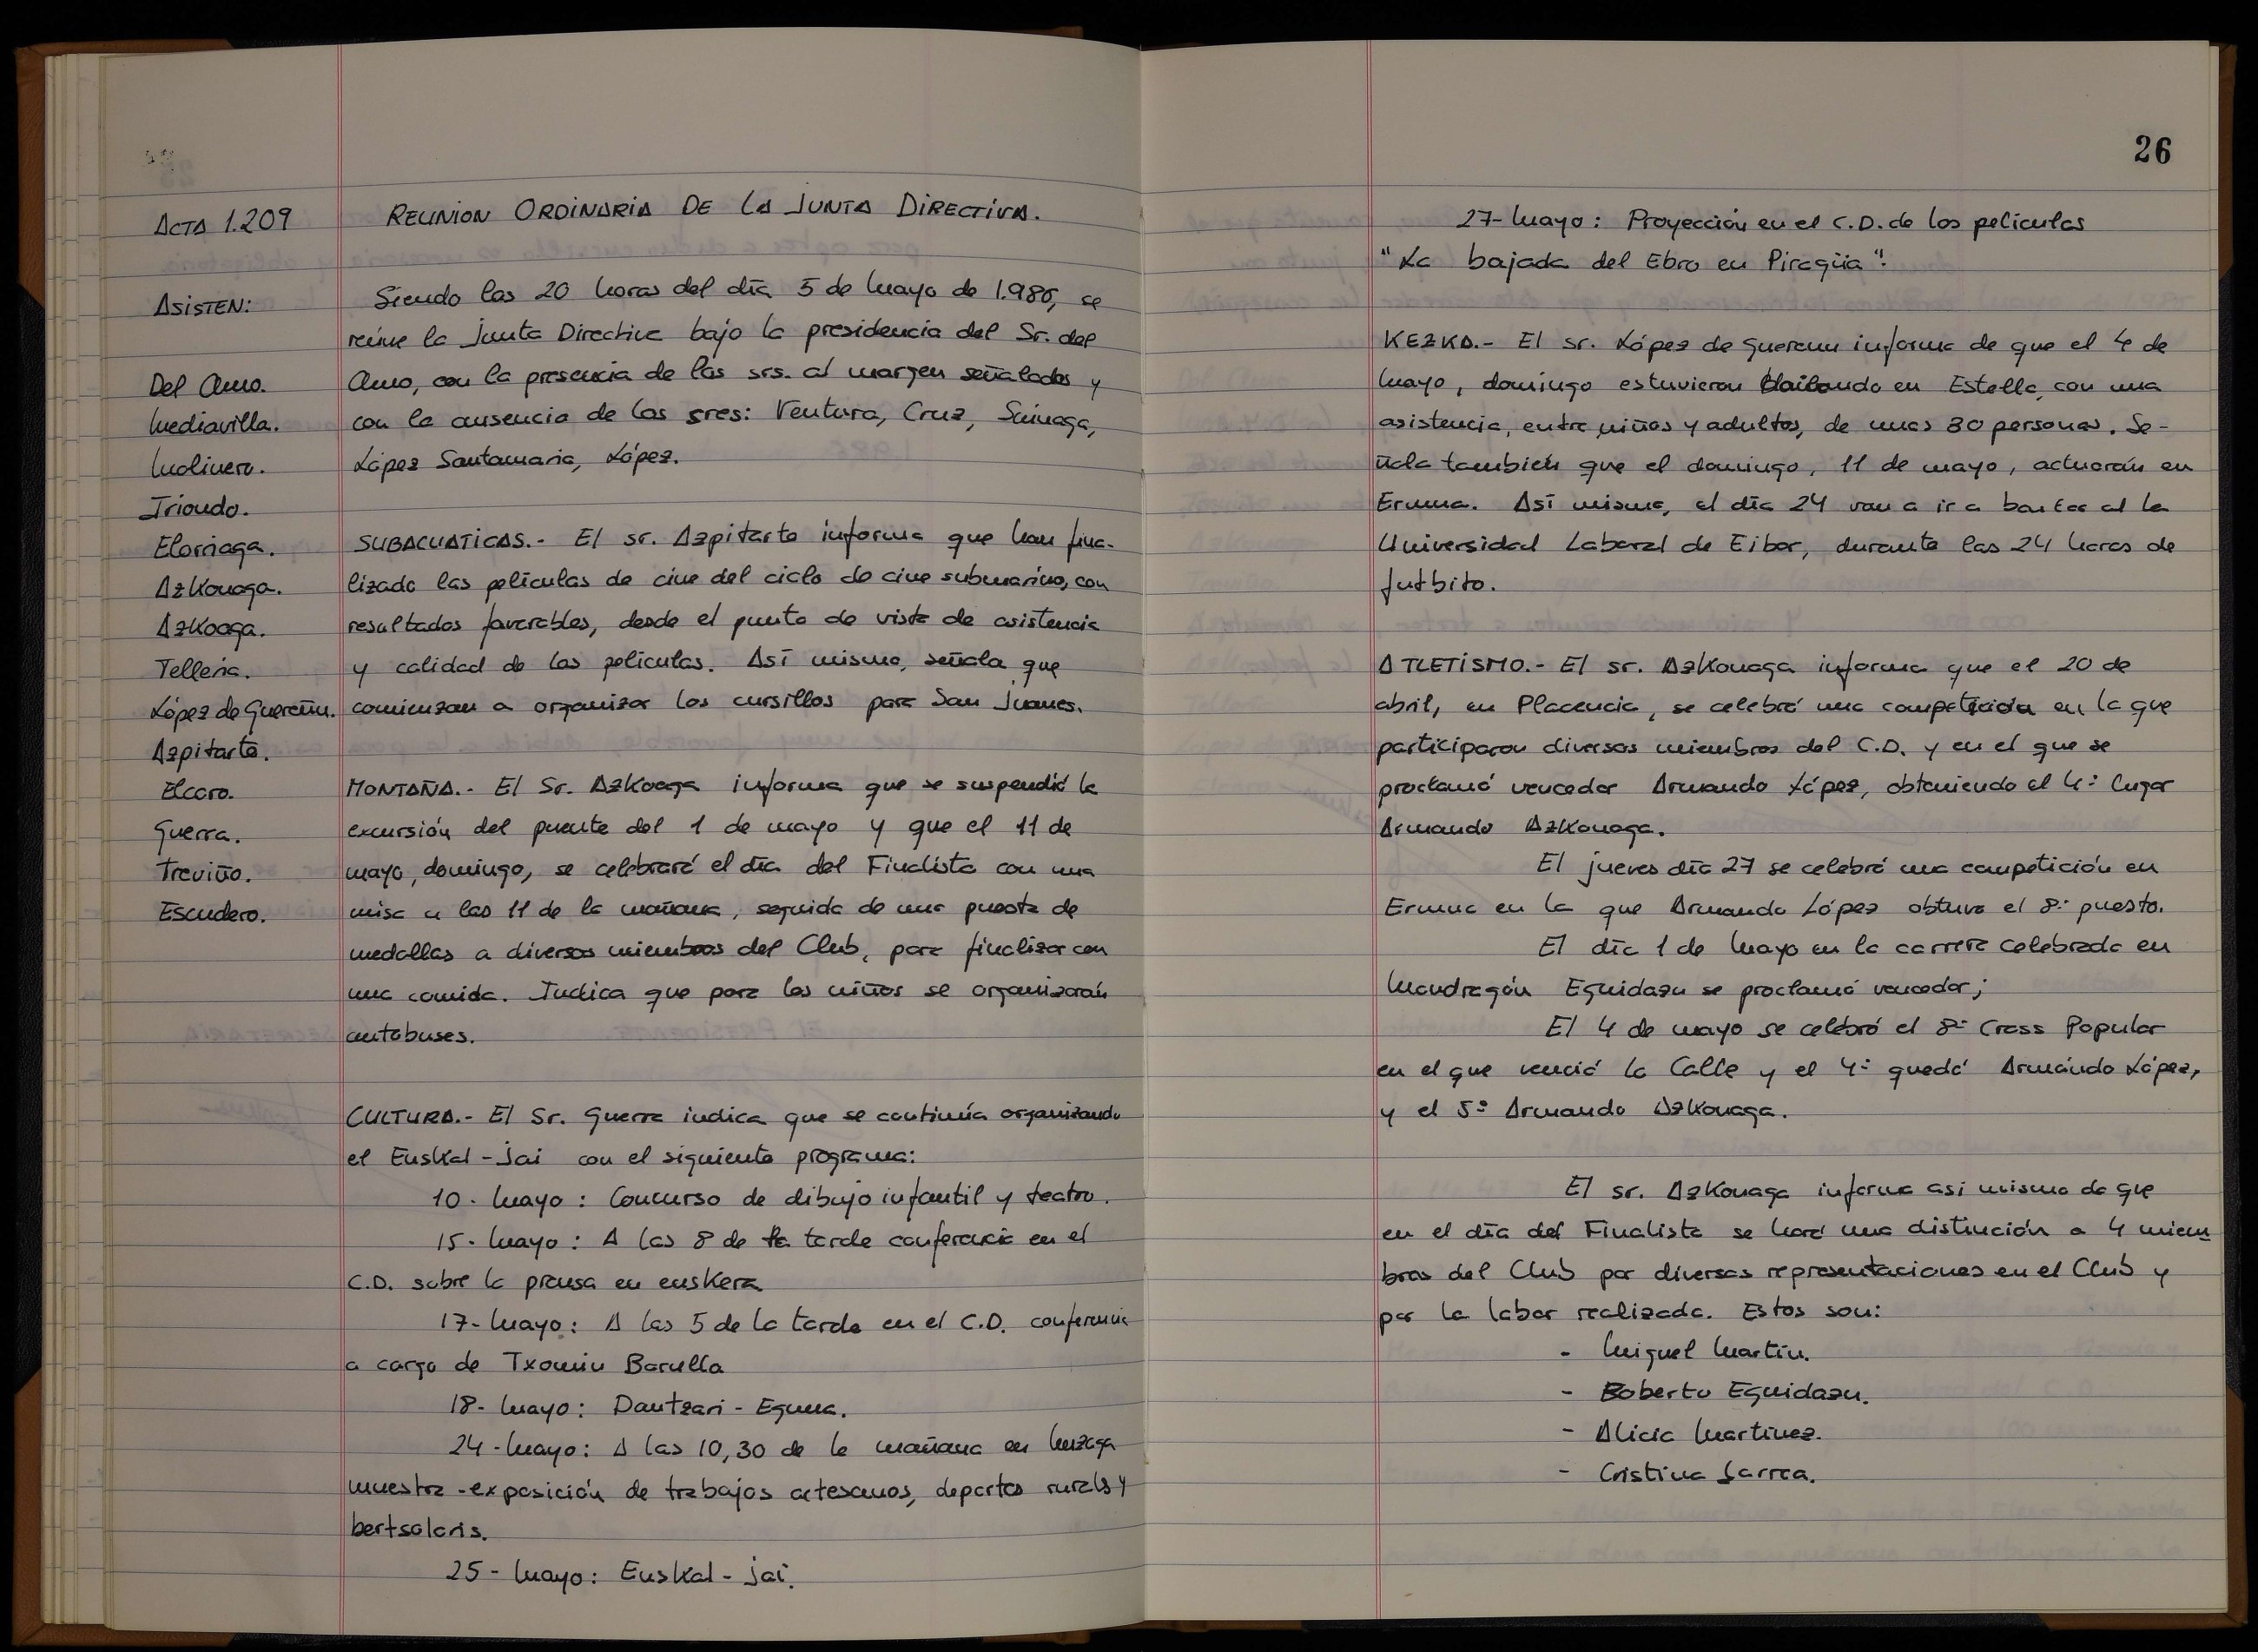 ACTA 1.209
REUNION ORDINARIA DE LA JUNTA DIRECTIVA.
ASISTEN:
Del Amo.
Mediavilla.
Molinero.
Iriondo.
Elorriaga.
Azkonaga.
Azkoaga.
Telleria.
López de Guereñu.
Azpitarte.
Elcoro.
Guerra.
Treviño.
Escudero.
Siendo las 20 horas del día 5 de Mayo de 1.986, se
reúne la Junta Directiva bajo la presidencia del Sr. del
Amo, con la presencia de los srs. al margen señalados y
con la ausencia de los sres: Ventura, Cruz, Suinaga,
López Santamaria, López.
SUBACUATICAS.- El sr. Azpitarte informa que han fina-
lizado las películas de cine del ciclo de cine submarino, con
resultados favorables, desde el punto de vista de asistencia
y calidad de las películas. Así mismo, señala que
comienzan a organizar los cursillos para San Juanes.
MONTAÑA.- El Sr. Azkoaga informa que se suspendió la
excursión del puente del 1 de mayo y que el 11 de
mayo, domingo, se celebrará el día del Finalista con una
misa a las 11 de la mañana, seguida de una puesta de
medallas a diversos miembros del Club, para finalizar con
una comida. Indica que para los niños se organizarán
autobuses.
CULTURA.- El Sr. Guerra indica que se continúa organizando
el Euskal-Jai con el siguiente programa:
10- Mayo: Concurso de dibujo infantil y teatro.
15- Mayo: A las 8 de la tarde conferencia en el
C.D. sobre la prensa en euskera
17- Mayo: A las 5 de la tarde en el C.D. conferencia
a cargo de Txomin Barulla
18- Mayo: Dantzari-Eguna.
24- Mayo: A las 10,30 de la mañana en Unzaga
muestra-exposición de trabajos artesanos, deportes rurales y
bertsolaris.
25- Mayo: Euskal-Jai.
26
27- Mayo: Proyección en el C.D. de los películas
"La bajada del Ebro en Piragüa".
KEZKA.- El sr. López de Guerenu informa de que el 4 de
Mayo, domingo estuvieron bailando en Estella, con una
asistencia, entre niños y adultos, de unas 80 personas. Se-
ñala también que el domingo, 11 de mayo, actuarán en
Ermua. Así mismo, el día 24 van a ir a bailar al la
Universidad Laboral de Eibar, durante las 24 horas de
futbito.
ATLETISMO.- El sr. Azkonaga informa que el 20 de
abril, en Placencia, se celebró una competición en la que
participaron diversos miembros del C.D. y en el que se
proclamó vencedor Armando López, obteniendo el 4º lugar
Armando Azkonaga.
El jueves día 27 se celebró una competición en
Ermua en la que Armando López obtuvo el 8º puesto.
El día 1 de Mayo en la carrera celebrada en
Mondragón Eguidazu se proclamó vencedor;
El 4 de mayo se celebró el 8º Cross Popular
en el que venció la Calle y el 4º quedó Armando López,
y el 5º Armando Azkonaga.
El sr. Azkonaga informa asi mismo de que
en el día del Finalista se hará una distinción a 4 miem
bros del Club por diversas representaciones en el Club y
por la labor realizada. Estos son:
- Miguel Martín.
- Roberto Eguidazu.
- Alicia Martinez.
- Cristina Larrea.